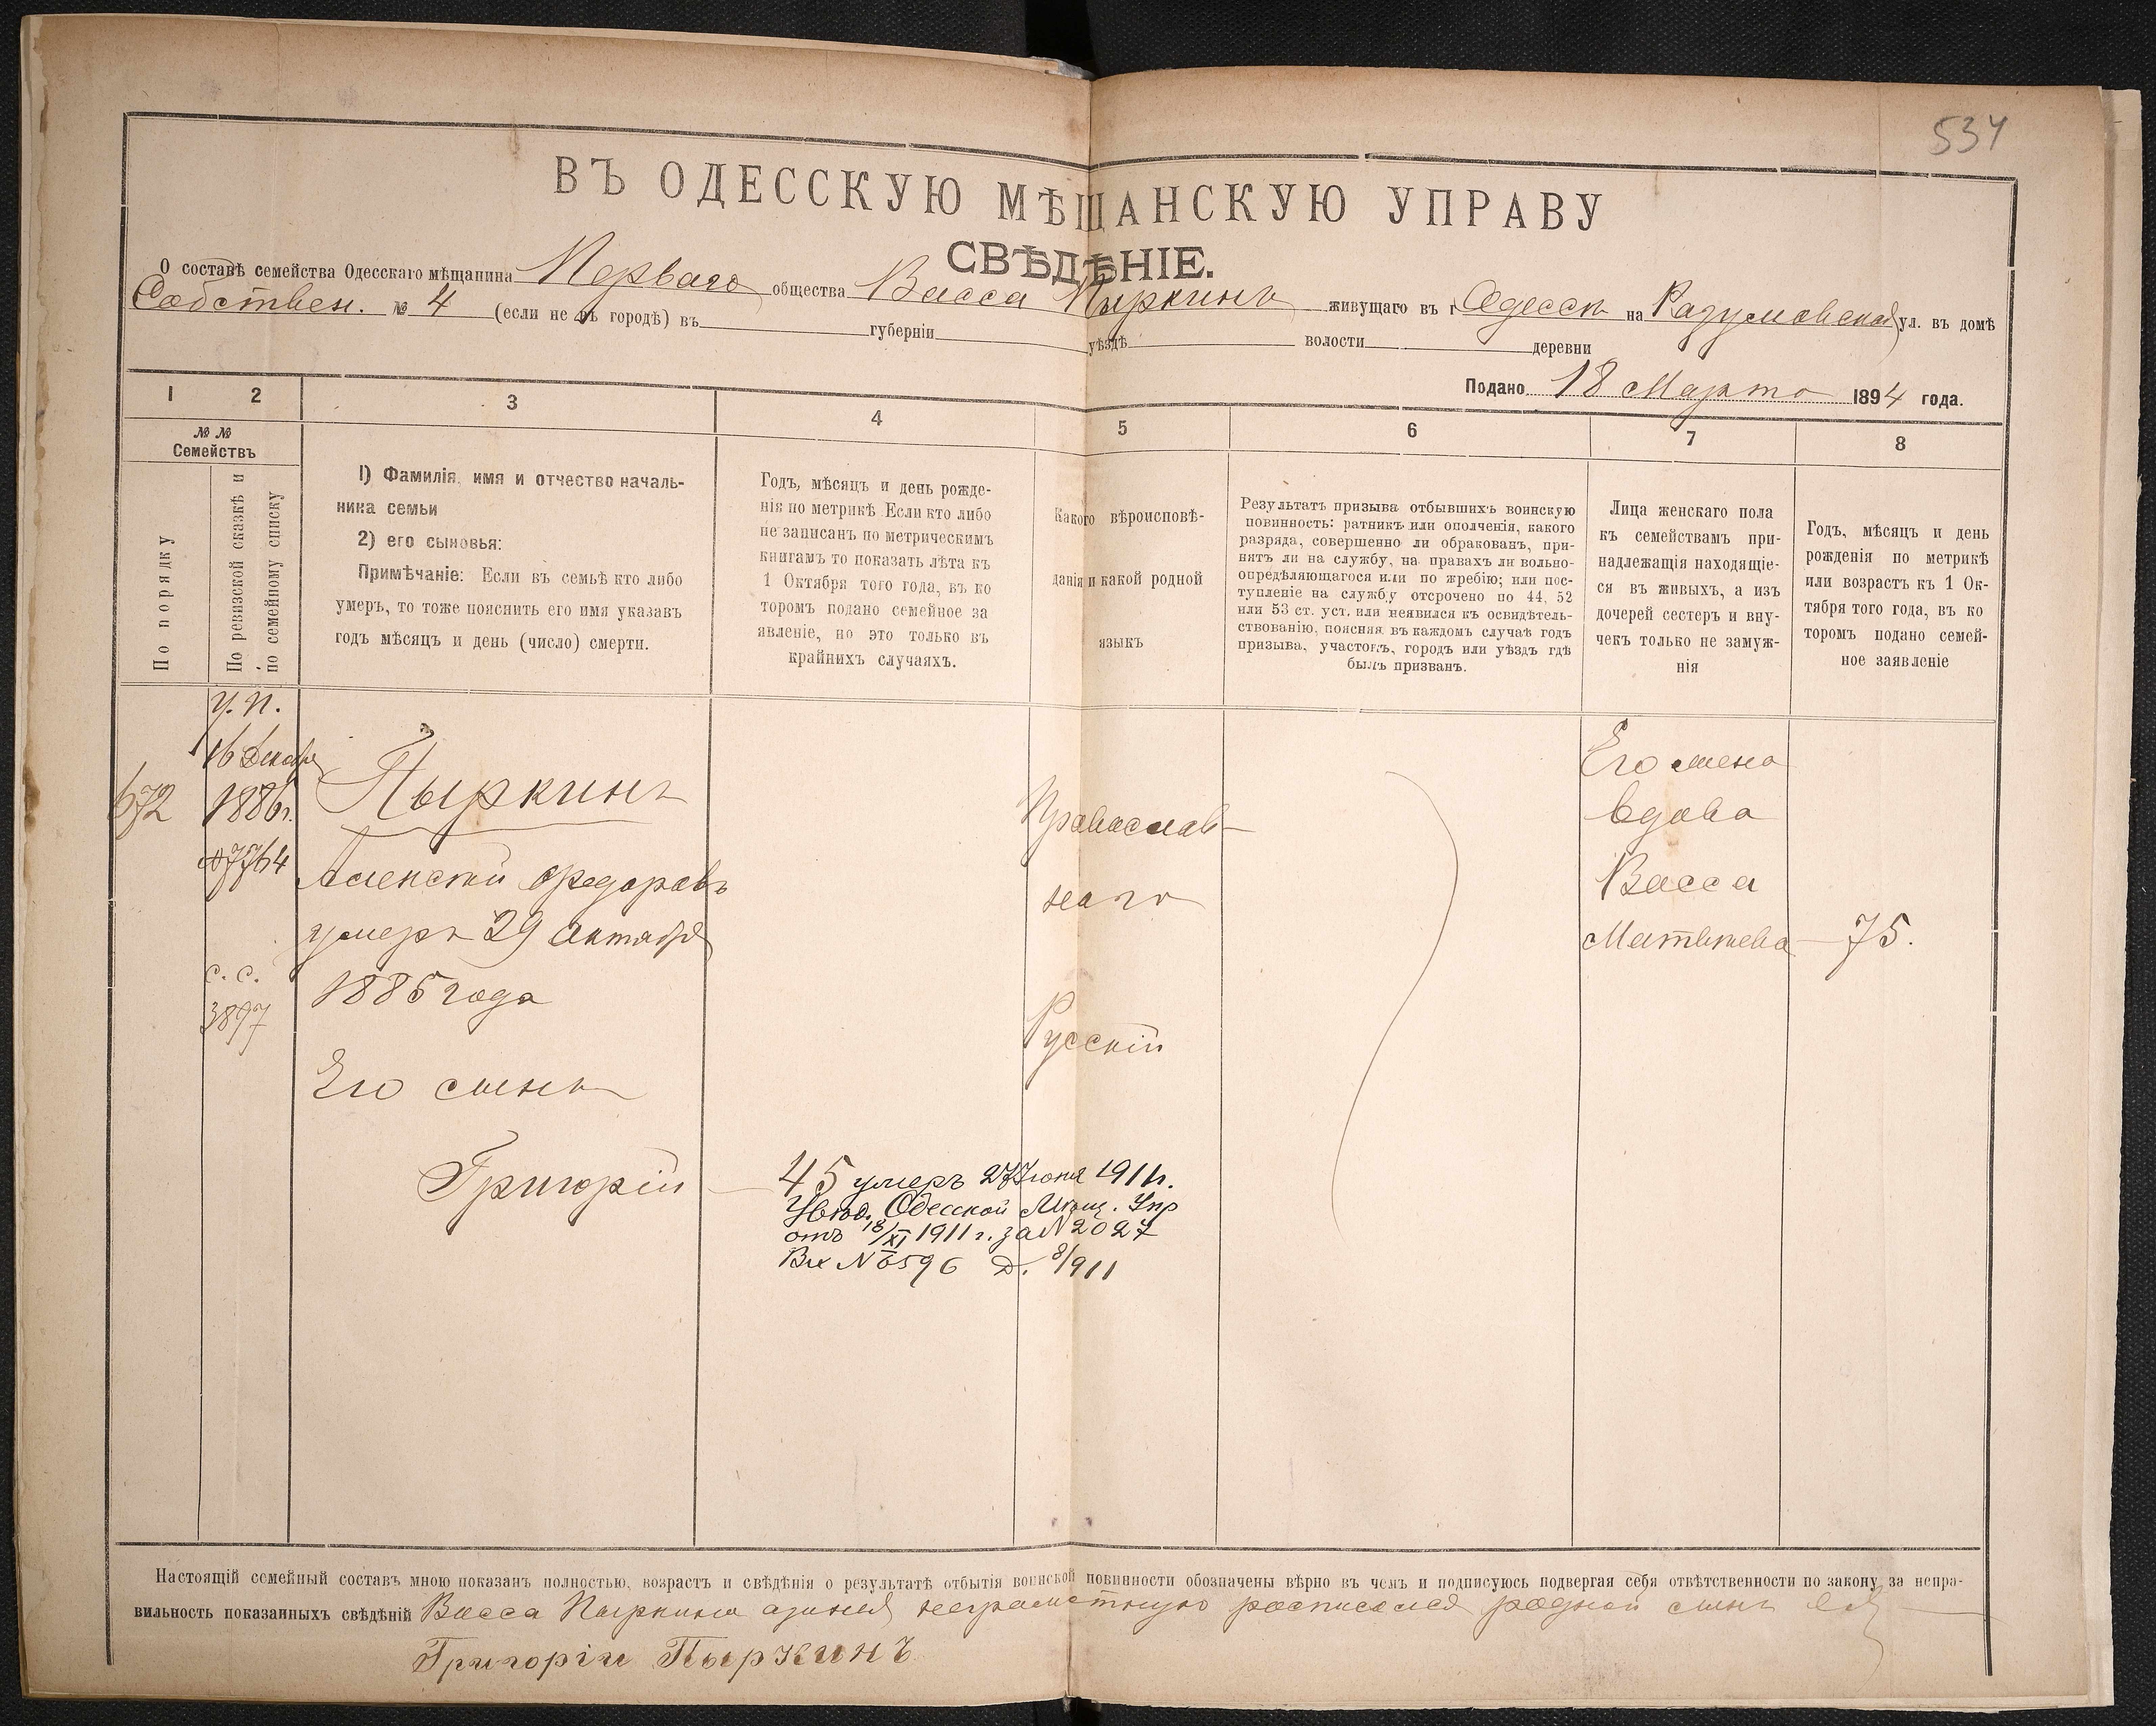 534
ВЪ ОДЕССКУЮ МѢЩАНСКУЮ УПРАВУ
СВѢДѢНІЕ.
О составѣ семейства Одесскаго мѣщанина Перваго общества Васса Пыркинъ живущаго въ г. Одессѣ на Разумовской ул. въ домѣ
Собствен. № 4 (если не въ городѣ) въ губерніи уѣздѣ волости деревни
Подано 18 Марта 1894 года.
1 2 3 4 5 6 7 8
№ №
Семействъ
По порядку
По ревизской сказкѣ и
по семейному списку
1) Фамилія, имя и отчество началь-
ника семьи
2) его сыновья:
Примѣчаніе: Если въ семьѣ кто либо
умеръ, то тоже пояснить его имя указавъ
годъ мѣсяцъ и день (число) смерти.
Годъ, мѣсяцъ и день рожде-
нія по метрикѣ Если кто либо
не записанъ по метрическимъ
книгамъ то показать лѣта къ
1 Октября того года, въ ко
торомъ подано семейное за
явленіе, но это только въ
крайнихъ случаяхъ.
Какого вѣроисповѣ-
данія и какой родной
языкъ
Результатъ призыва отбывшихъ воинскую
повинность: ратникъ или ополченія, какого
разряда, совершенно ли обракованъ, при-
нятъ ли на службу, на правахъ ли вольно-
опредѣляющагося или по жребію; или пос-
тупленіе на службу отсрочено по 44, 52
или 53 ст. уст. или неявился къ освидѣтель-
ствованію, поясняя въ каждомъ случаѣ годъ
призыва, участокъ, городъ или уѣздъ гдѣ
былъ призванъ.
Лица женскаго пола
къ семействамъ при-
надлежащія находящіе-
ся въ живыхъ, а изъ
дочерей сестеръ и вну-
чекъ только не замуж-
нія
Годъ, мѣсяцъ и день
рожденія по метрикѣ
или возрастъ къ 1 Ок-
тября того года, въ ко
торомъ подано семей-
ное заявленіе
672
у. п.
16 Декабря
1886 г.
№ 7764
с. с.
3897
Пыркинъ
Алексѣй Федоровъ
умеръ 29 Октября
1885 года
Его сынъ
Григорій
45 умеръ 27 Іюня 1911 г.
Увѣд. Одесской Мѣщ. Упр
отъ 18/XI 1911 г. за N 2027
Вх N 6596 Д. 8/911
Православ-
наго
Русскій
Его жена
вдова
Васса
Матвѣева — 75.
Настоящій семейный составъ мною показанъ полностью, возрастъ и свѣдѣнія о результатѣ отбытія воинской повинности обозначены вѣрно въ чемъ и подписуюсь подвергая себя отвѣтственности по закону за непра-
вильность показанныхъ свѣдѣній Васса Пыркина неграмотную росписался родной сынъ ея
Григорій Пыркинъ